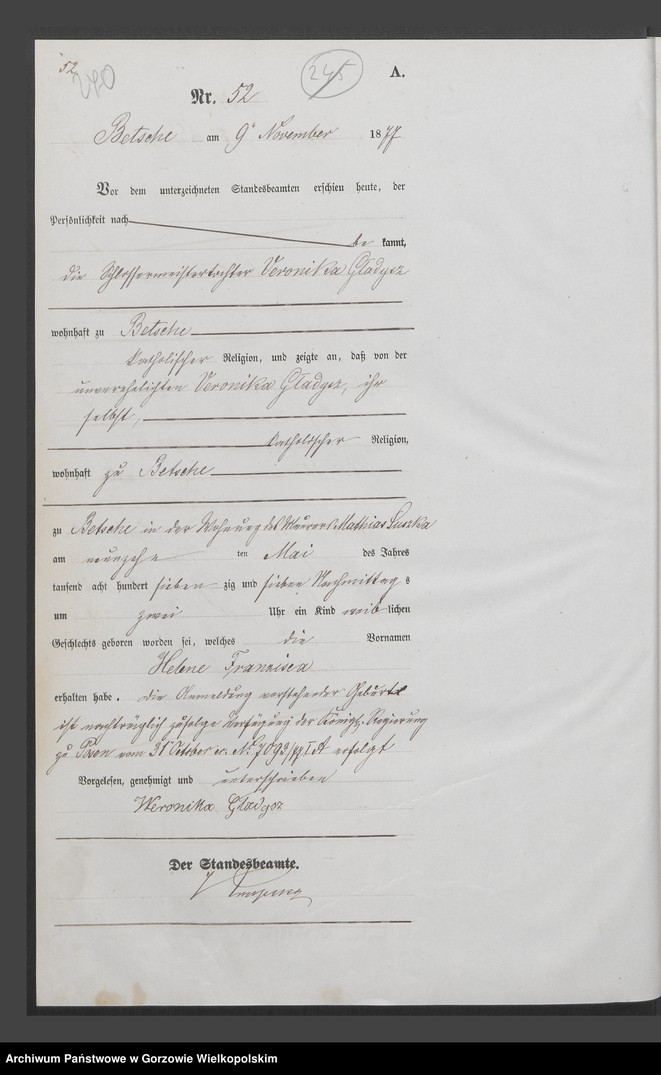 52
240
245
A.
Nr. 52
Betsche am 9t November 1877
Vor dem unterzeichneten Standesbeamten erschien heute, der
Persönlichkeit nach
be kannt,
die Schlossermeistertochter Veronika Gladysz
wohnhaft zu Betsche
katholischer Religion, und zeigte an, daß von der
unverehelichten Veronika Gladysz, ihr
selbst,
katholischer Religion,
wohnhaft zu Betsche
zu Betsche in der Wohnung des Maurers Mathias Suszka
am neunzehn ten Mai des Jahres
tausend acht hundert sieben zig und sieben Nachmittag s
um zwei Uhr ein Kind weib lichen
Geschlechts geboren worden sei, welches die Vornamen
Helene Francisca
erhalten habe. die Anmeldung vorstehender Geburt
ist nachträglich zufolge Verfügung der Königl. Regierung
zu Posen vom 31 October cr. No 7093/77 I A erfolgt
Vorgelesen, genehmigt und unterschrieben
Weronika Gladysz
Der Standesbeamte.
Archiwum Państwowe w Gorzowie Wielkopolskim